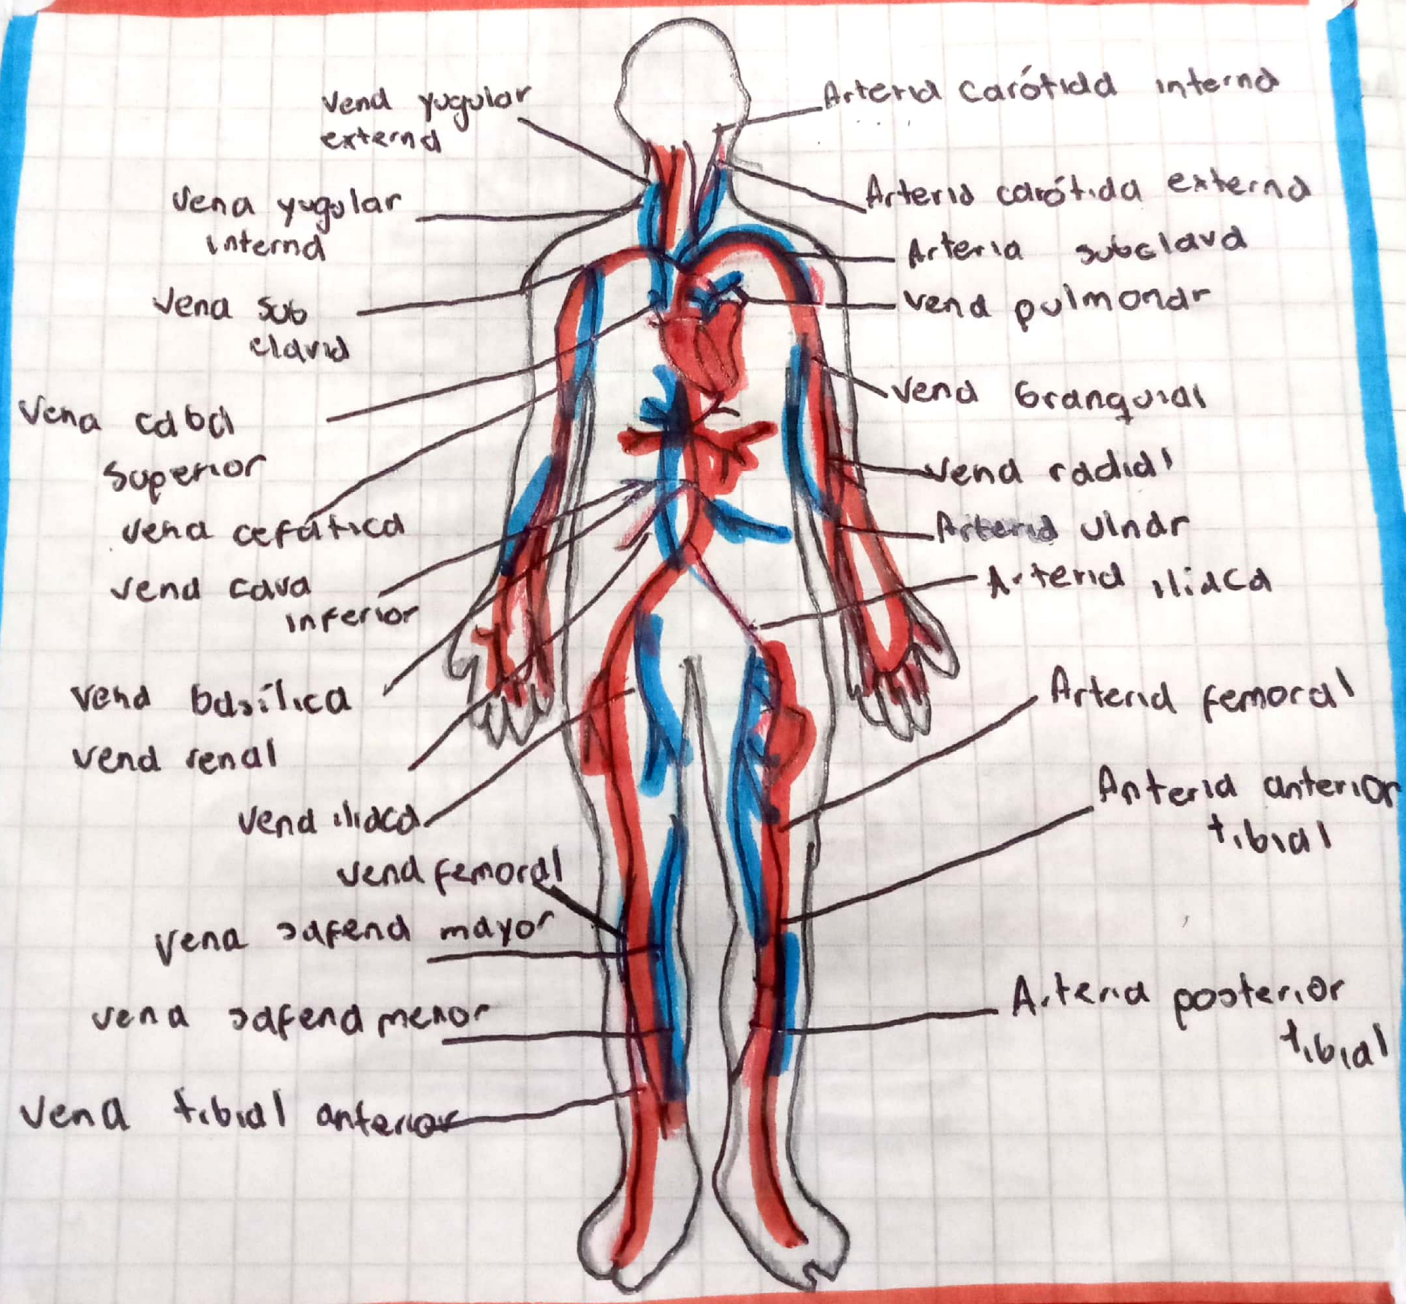 Vena yugular
externa
Vena yugular
interna
Vena sub
clavia
Vena caba
superior
Vena cefática
Vena cava
inferior
Vena basílica
Vena renal
Vena iliaca
Vena femoral
Vena safena mayor
Vena safena menor
Vena tibial anterior
Arteria carótida interna
Arteria carótida externa
Arteria subclava
Vena pulmonar
Vena branquial
Vena radial
Arteria ulnar
Arteria iliaca
Arteria femoral
Anteria anterior
tibial
Arteria posterior
tibial